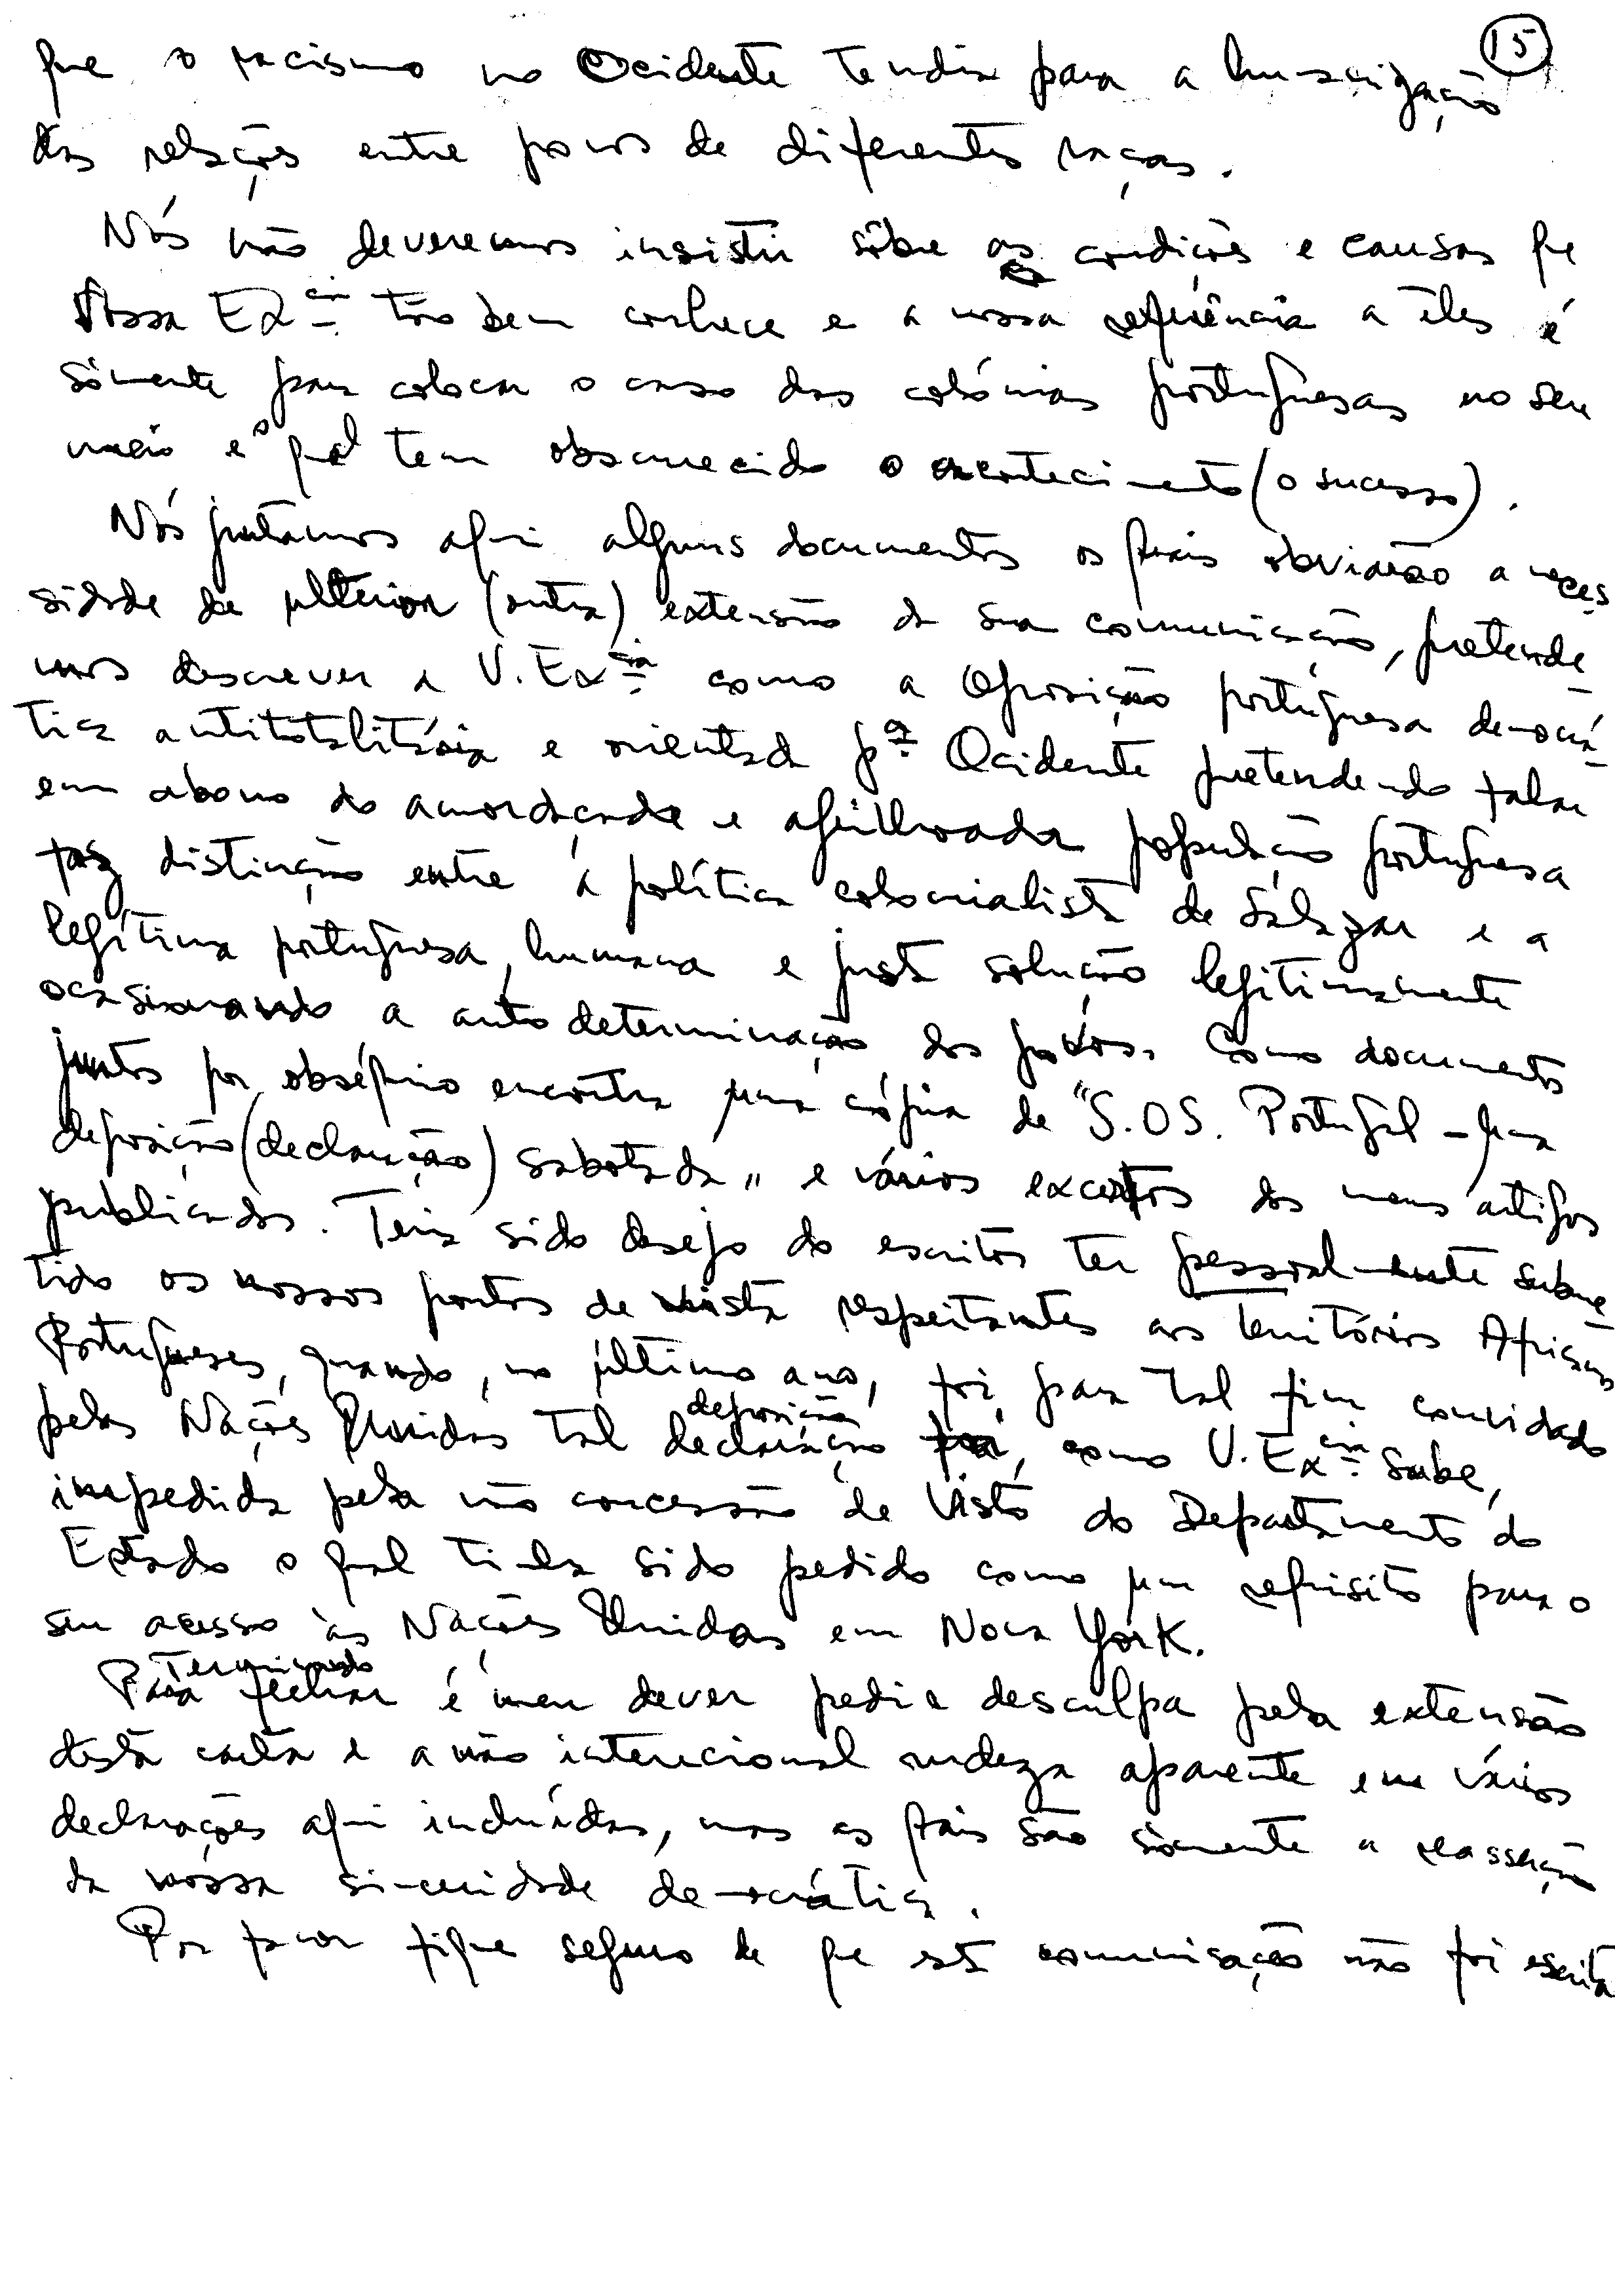 15
que o racismo no Ocidente tendia para a humanização
das relações entre povos de diferentes raças.
Nós não deveremos insistir sôbre as condições e causas que
Vossa Exª. tão bem conhece e a nossa referência a êles é
sómente para colocar o caso das colónias portuguesas no seu
meio e o qual tem obscurecido o acontecimento (o sucesso).
Nós juntamos aqui alguns documentos os quais obviarão a neces
sidade de ulterior (outra) extensão da sua comunicação, pretende
mos descrever a V. Excia. como a Oposição portuguesa democrá-
tica antitotalitária e orientada pª. Ocidente pretendendo falar
em abono da amordaçada e aguilhoada população portuguesa
faz distinção entre a política colonialista de Salazar e a
legítima portuguesa, humana e justa solução legitimamente
ocasionando a auto determinação dos povos. Como documentos
juntos por obséquio encontra uma cópia de "S.OS. Portugal - uma
deposição (declaração) sabotada" e vários excertos dos meus artigos
publicados. Teria sido desejo do escritor ter pessoalmente subme
tido os nossos pontos de vista respeitantes aos territórios Africanos
Portugueses, quando, no último ano, foi para tal fim convidado
pelas Nações Unidas tal declaração foi, como V. Excia. sabe,
deposição
impedida pela não concessão de Visto do Departamento do
Estado o qual tinha sido pedido como um requisito para o
seu acesso às Nações Unidas em Nova York.
Terminando
Para fechar é meu dever pedir desculpa pela extensão
desta carta e a não intencional rudeza aparente em vários
declarações aqui incluídas, mas as quais são sòmente a reasserção
da nossa sinceridade democrática.
Por favor fique seguro de que esta comunicação não foi escrita